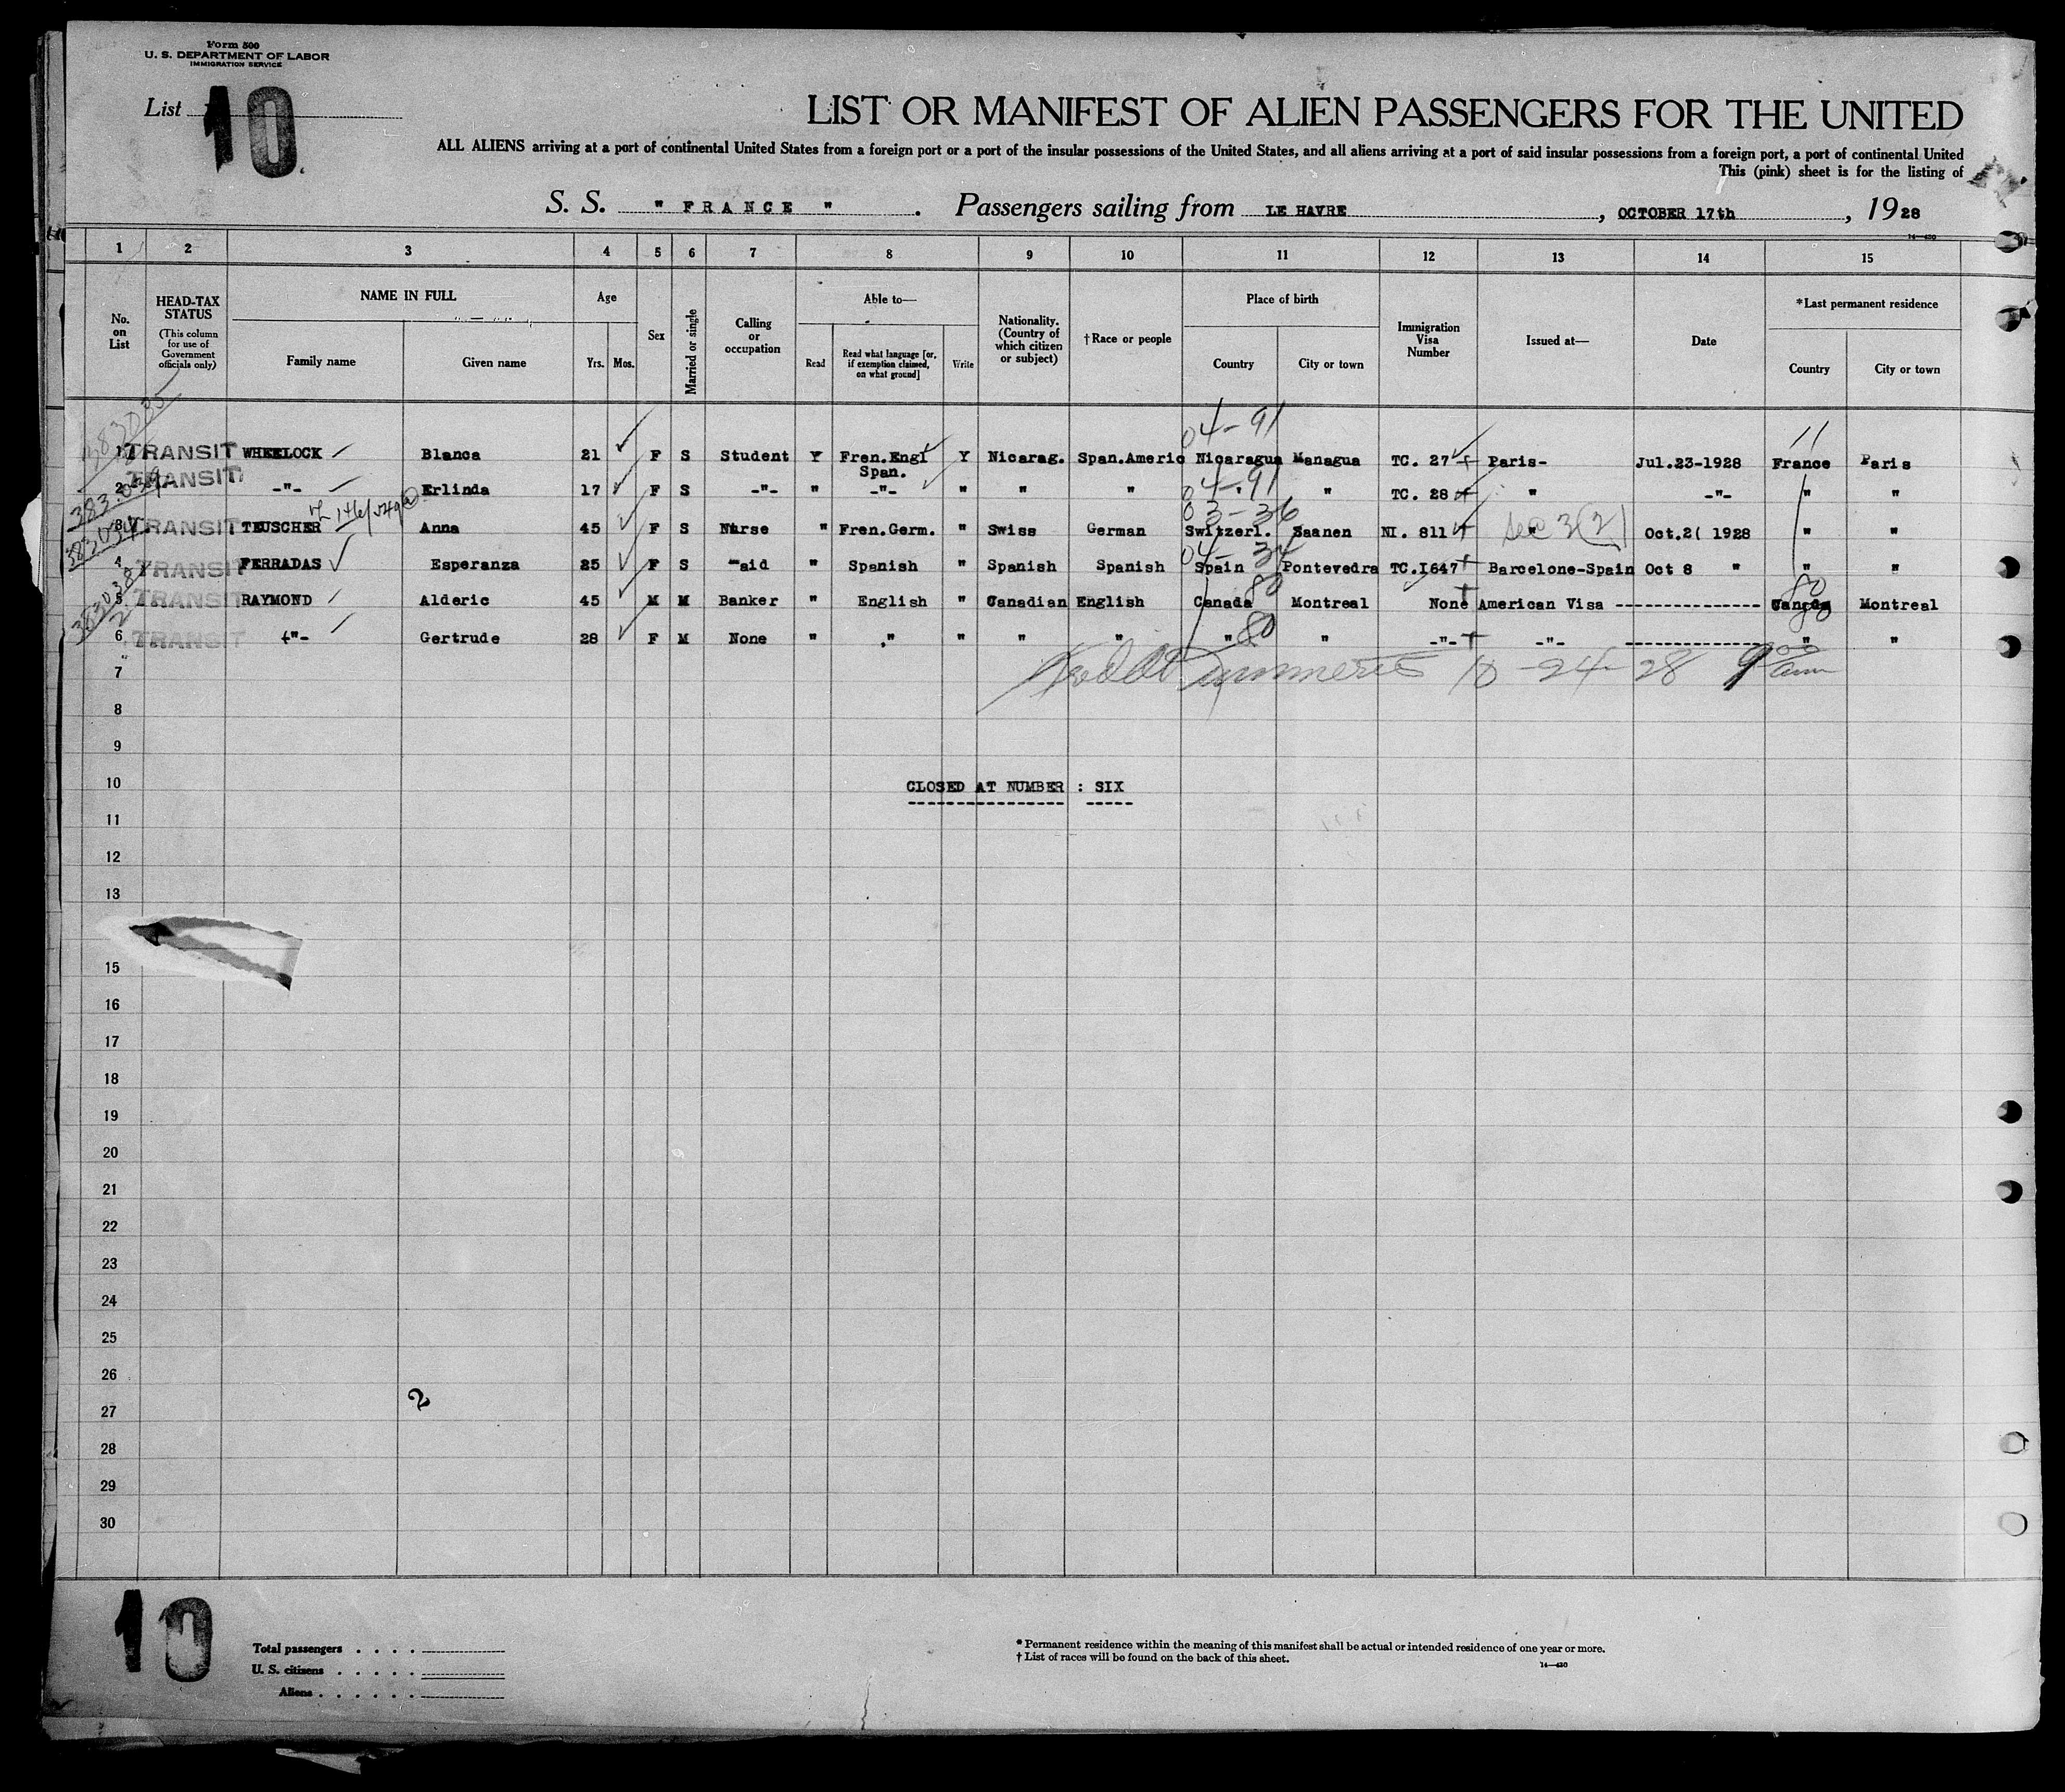 Form 500
U. S. DEPARTMENT OF LABOR
IMMIGRATION SERVICE
List 10
LIST OR MANIFEST OF ALIEN PASSENGERS FOR THE UNITED
ALL ALIENS arriving at a port of continental United States from a foreign port or a port of the insular possessions of the United States, and all aliens arriving at a port of said insular possessions from a foreign port, a port of continental United
This (pink) sheet is for the listing of
S. S. " FRANCE " . Passengers sailing from LE HAVRE , OCTOBER 17th , 1928
14—430
1 2 3 4 5 6 7 8 9 10 11 12 13 14 15
No. on List
HEAD-TAX STATUS
(This column for use of Government officials only)
NAME IN FULL
Family name Given name
Age
Yrs. Mos.
Sex
Married or single
Calling or occupation
Able to—
Read
Read what language [or, if exemption claimed, on what ground]
Write
Nationality. (Country of which citizen or subject)
†Race or people
Place of birth
Country City or town
Immigration Visa Number
Issued at—
Date
*Last permanent residence
Country City or town
04-91 11
1 TRANSIT WHEELOCK Blanca 21 F S Student Y Fren.Engl Y Nicarag. Span.Americ Nicaragua Managua TC. 27 Paris- Jul.23-1928 France Paris
Span.
04-91
2 TRANSIT -"- Erlinda 17 F S -"- " -"- " " " " TC. 28 " -"- " "
383.039
03-36
3 TRANSIT TEUSCHER Anna 45 F S Nurse " Fren.Germ. " Swiss German Switzerl. Saanen NI. 811 " Sec 3(2) Oct.2( 1928 " "
04-34
4 TRANSIT FERRADAS Esperanza 25 F S aid " Spanish " Spanish Spanish Spain Pontevedra TC.I647 Barcelone-Spain Oct 8 " " "
80 80
5 TRANSIT RAYMOND Alderic 45 M M Banker " English " Canadian English Canada Montreal None American Visa --------------- Canada Montreal
80 80
6 TRANSIT -"- Gertrude 28 F M None " " " " " " " -"- -"- --------------- " "
7 10-24-28 9 00 am
8
9
10 CLOSED AT NUMBER : SIX
11
12
13
15
16
17
18
19
20
21
22
23
24
25
26
2
27
28
29
30
10
Total passengers . . . .
U. S. citizens . . . . .
Aliens . . . . . .
* Permanent residence within the meaning of this manifest shall be actual or intended residence of one year or more.
† List of races will be found on the back of this sheet.
14—430